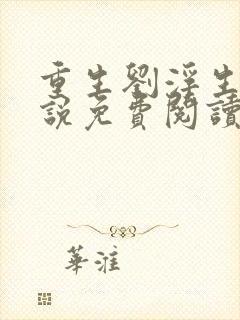 重生劉淫生
說免費閱讀
華淮